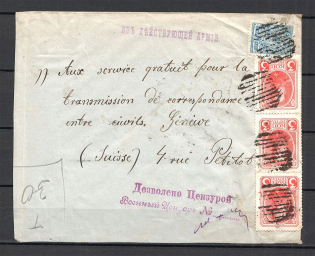 ИЗЪ ДѢЙСТВУЮЩЕЙ АРМІИ
Aux service gratuit pour la
transmission de correpondance
entre civils. Genève
(Suisse) 4 rue Petitot
Дозволено Цензурой
Военный Цензоръ №